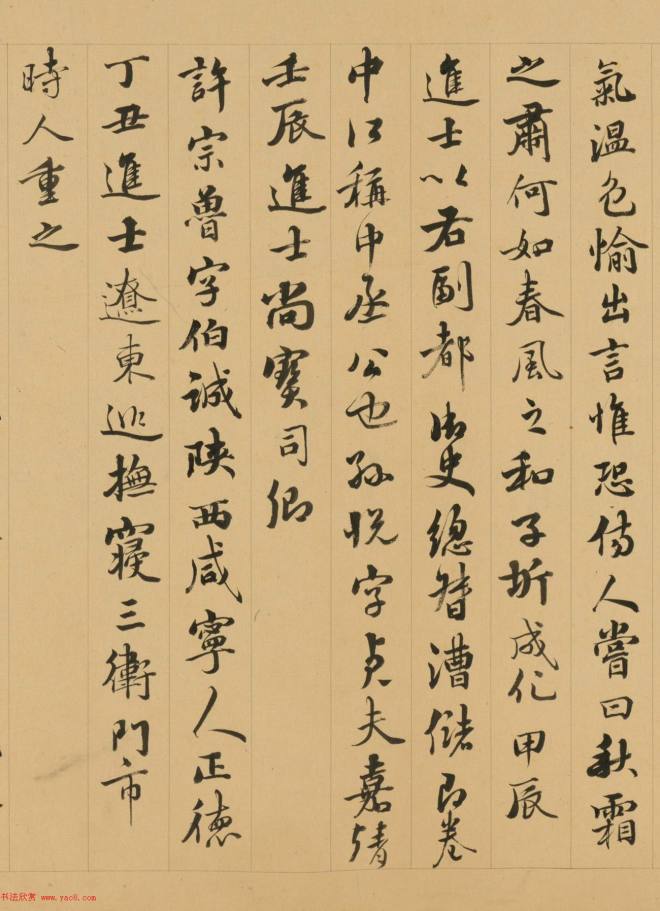 氣溫色愉出言惟恐傷人嘗曰秋霜
之肅何如春風之和子圻成化甲辰
進士以右副都御史總督漕儲即卷
中所稱中丞公也孫悅字貞夫嘉靖
壬辰進士尚寶司卿
許宗魯字伯誠陝西咸寧人正德
丁丑進士遼東巡撫寢三衛門市
時人重之
书法欣赏 www.yac8.com